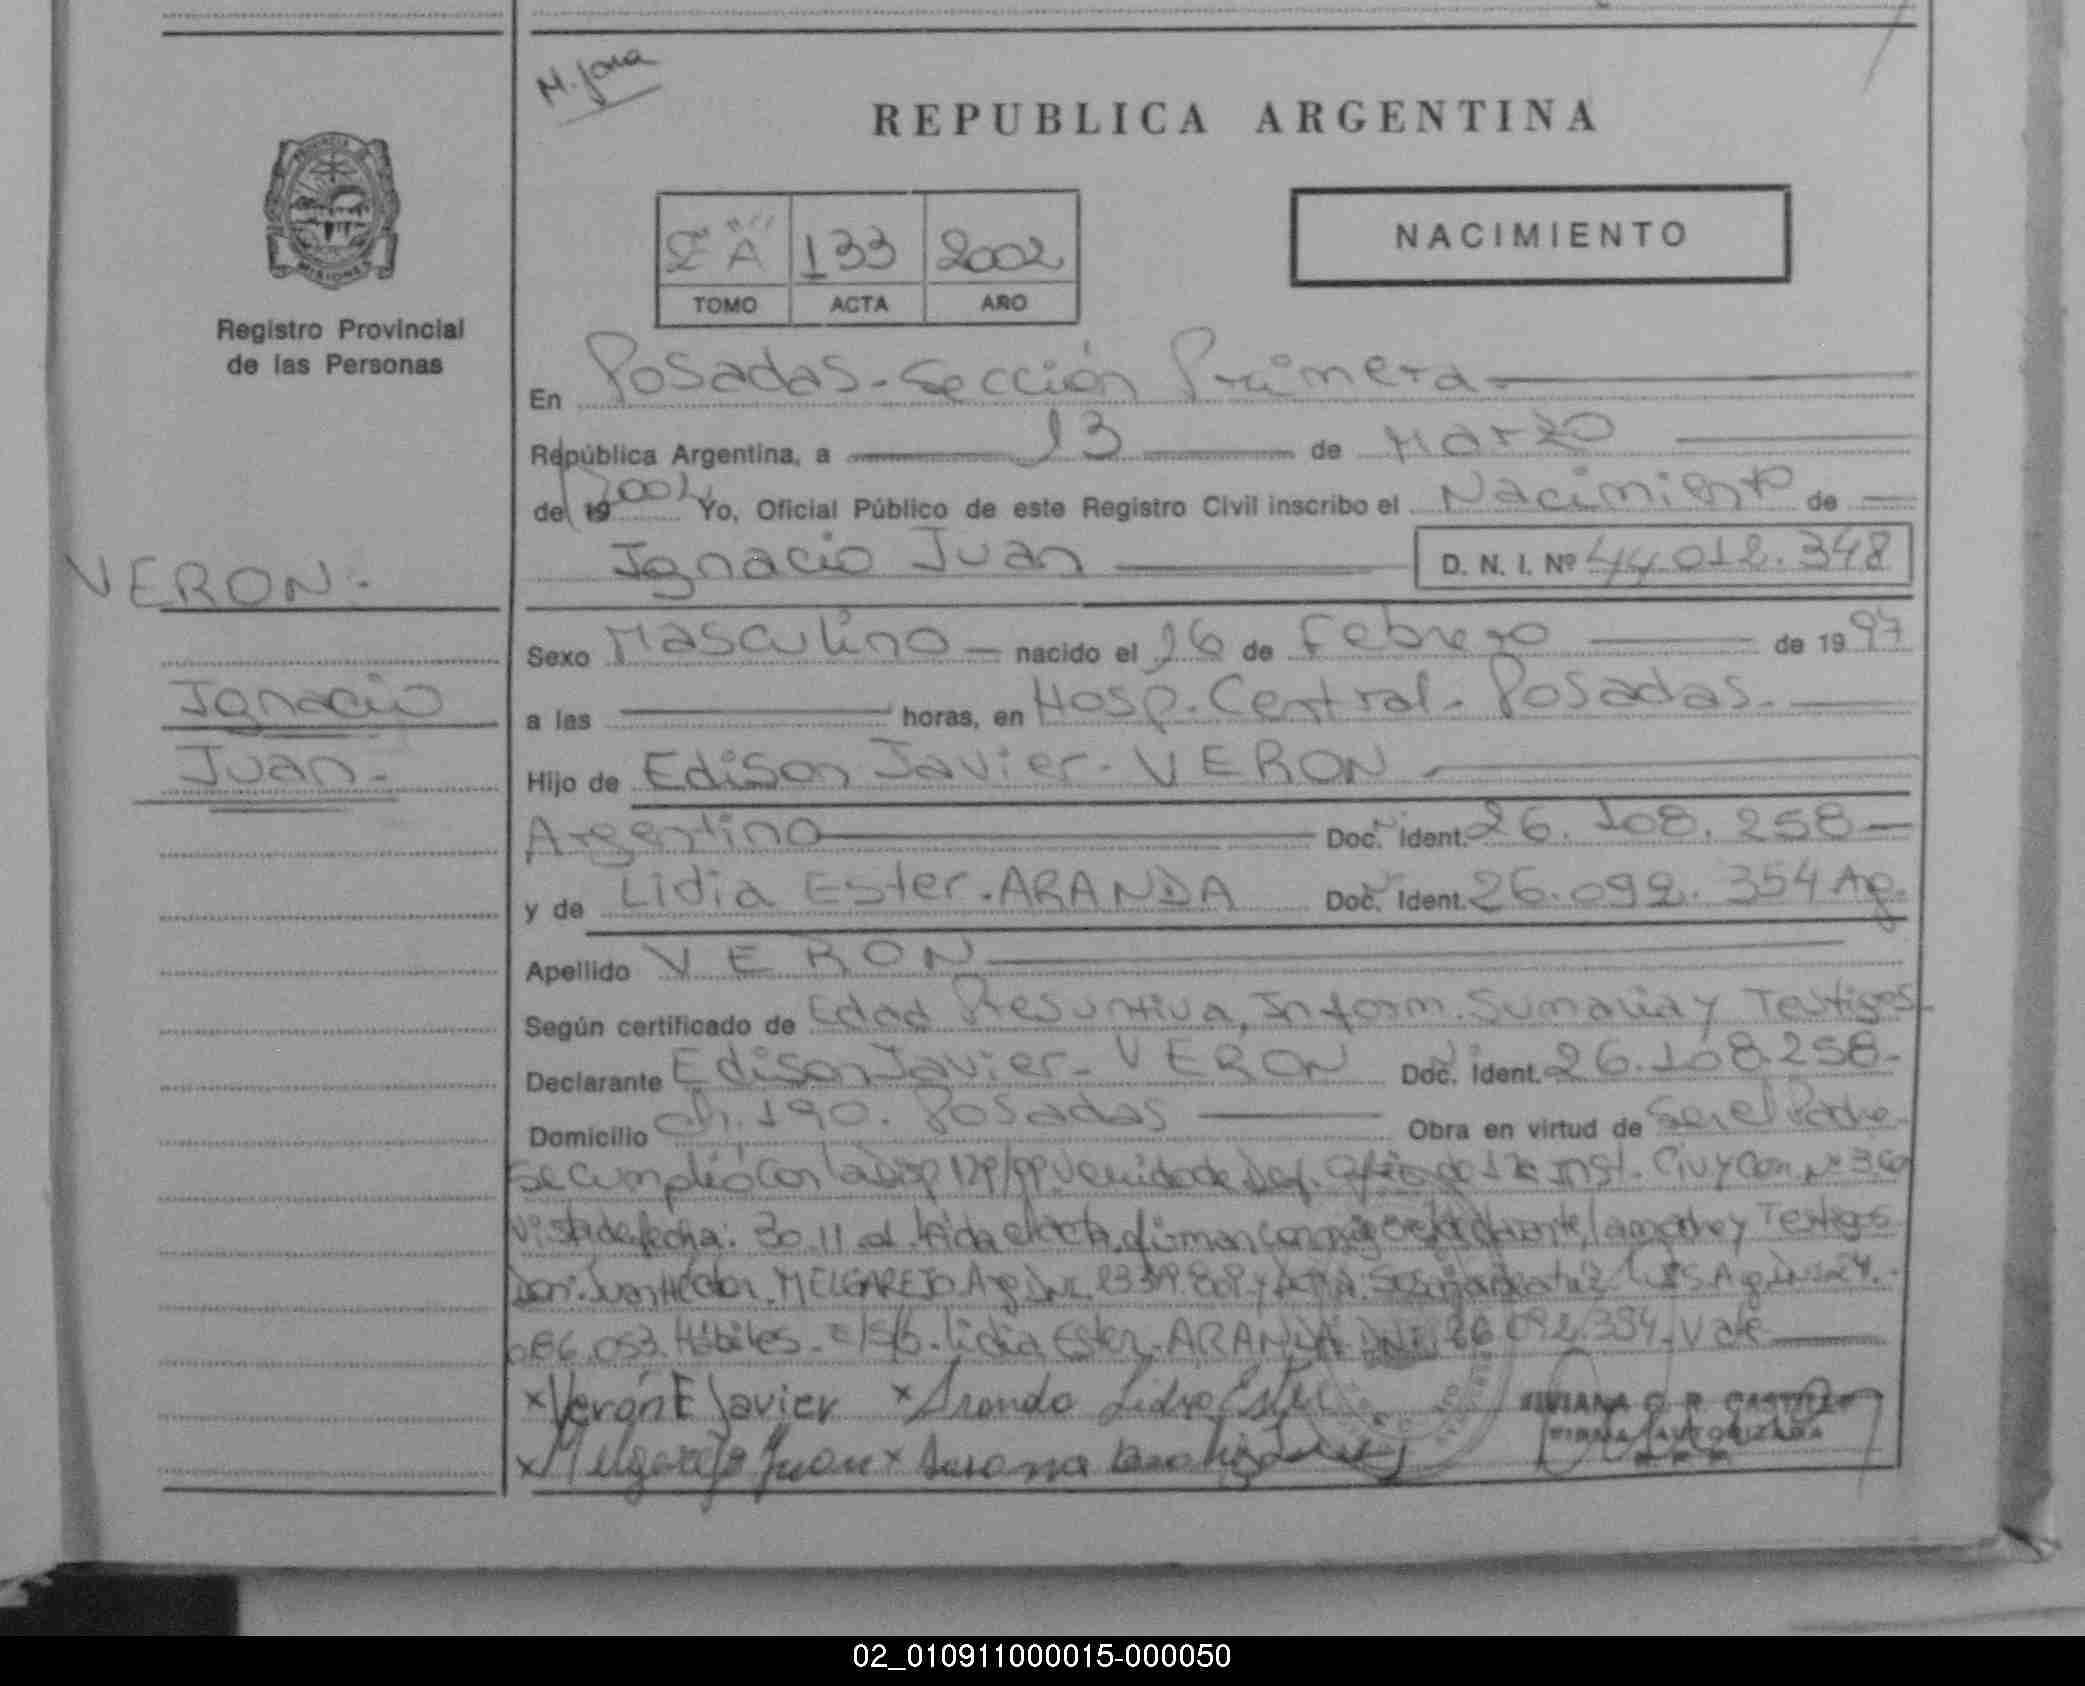 M. Jara
REPUBLICA ARGENTINA
NACIMIENTO
"A" 133 2002
TOMO ACTA AÑO
MISIONES
Registro Provincial
de las Personas
En Posadas - Sección Primera.
República Argentina, a 13 de Marzo
de 19 2002 Yo, Oficial Público de este Registro Civil inscribo el Nacimiento de
Ignacio Juan D. N. I. Nº 44.012.348
VERON.
Ignacio
Juan.
Sexo Masculino nacido el 26 de Febrero de 19 97
a las horas, en Hosp. Central - Posadas.
Hijo de Edison Javier - VERON
Argentino Doc. Ident. 26.108.258
y de Lidia Ester - ARANDA Doc. Ident. 26.092.354 Ag.
Apellido VERON
Según certificado de Edad Presuntiva, Inform. Sumaria y Testigos
Declarante Edison Javier - VERON Doc. Ident. 26.108.258-
Domicilio Ch. 190. Posadas Obra en virtud de Ser el Padre
Se cumplió con la Disp 129/99 de Inst. Civ y Com. Nº
Vista de fecha: 30.11.01. leída el acta, firman conmigo el declarante, la madre y Testigos
Don: Juan Héctor MELGAREJO Arg DNI
053. Hábiles. E/S/b. Lidia Ester. ARANDA DNI. 26.092.354. Vale
x Verón E Javier x Aranda Lidia Ester
x Melgarejo Juan x Susana
VIVIANA C. R. CASTELLO
FIRMA AUTORIZADA
02_010911000015-000050